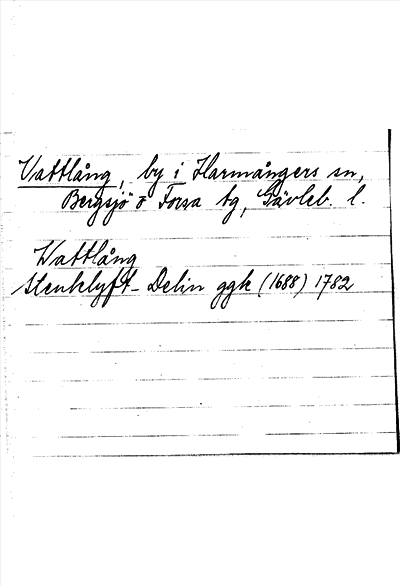 Vattlång, by i Harmångers sn,
Bergsjö o Forsa tg, Gävleb. l.
Wattlång
Stenklyft - Delin ggk (1688) 1782